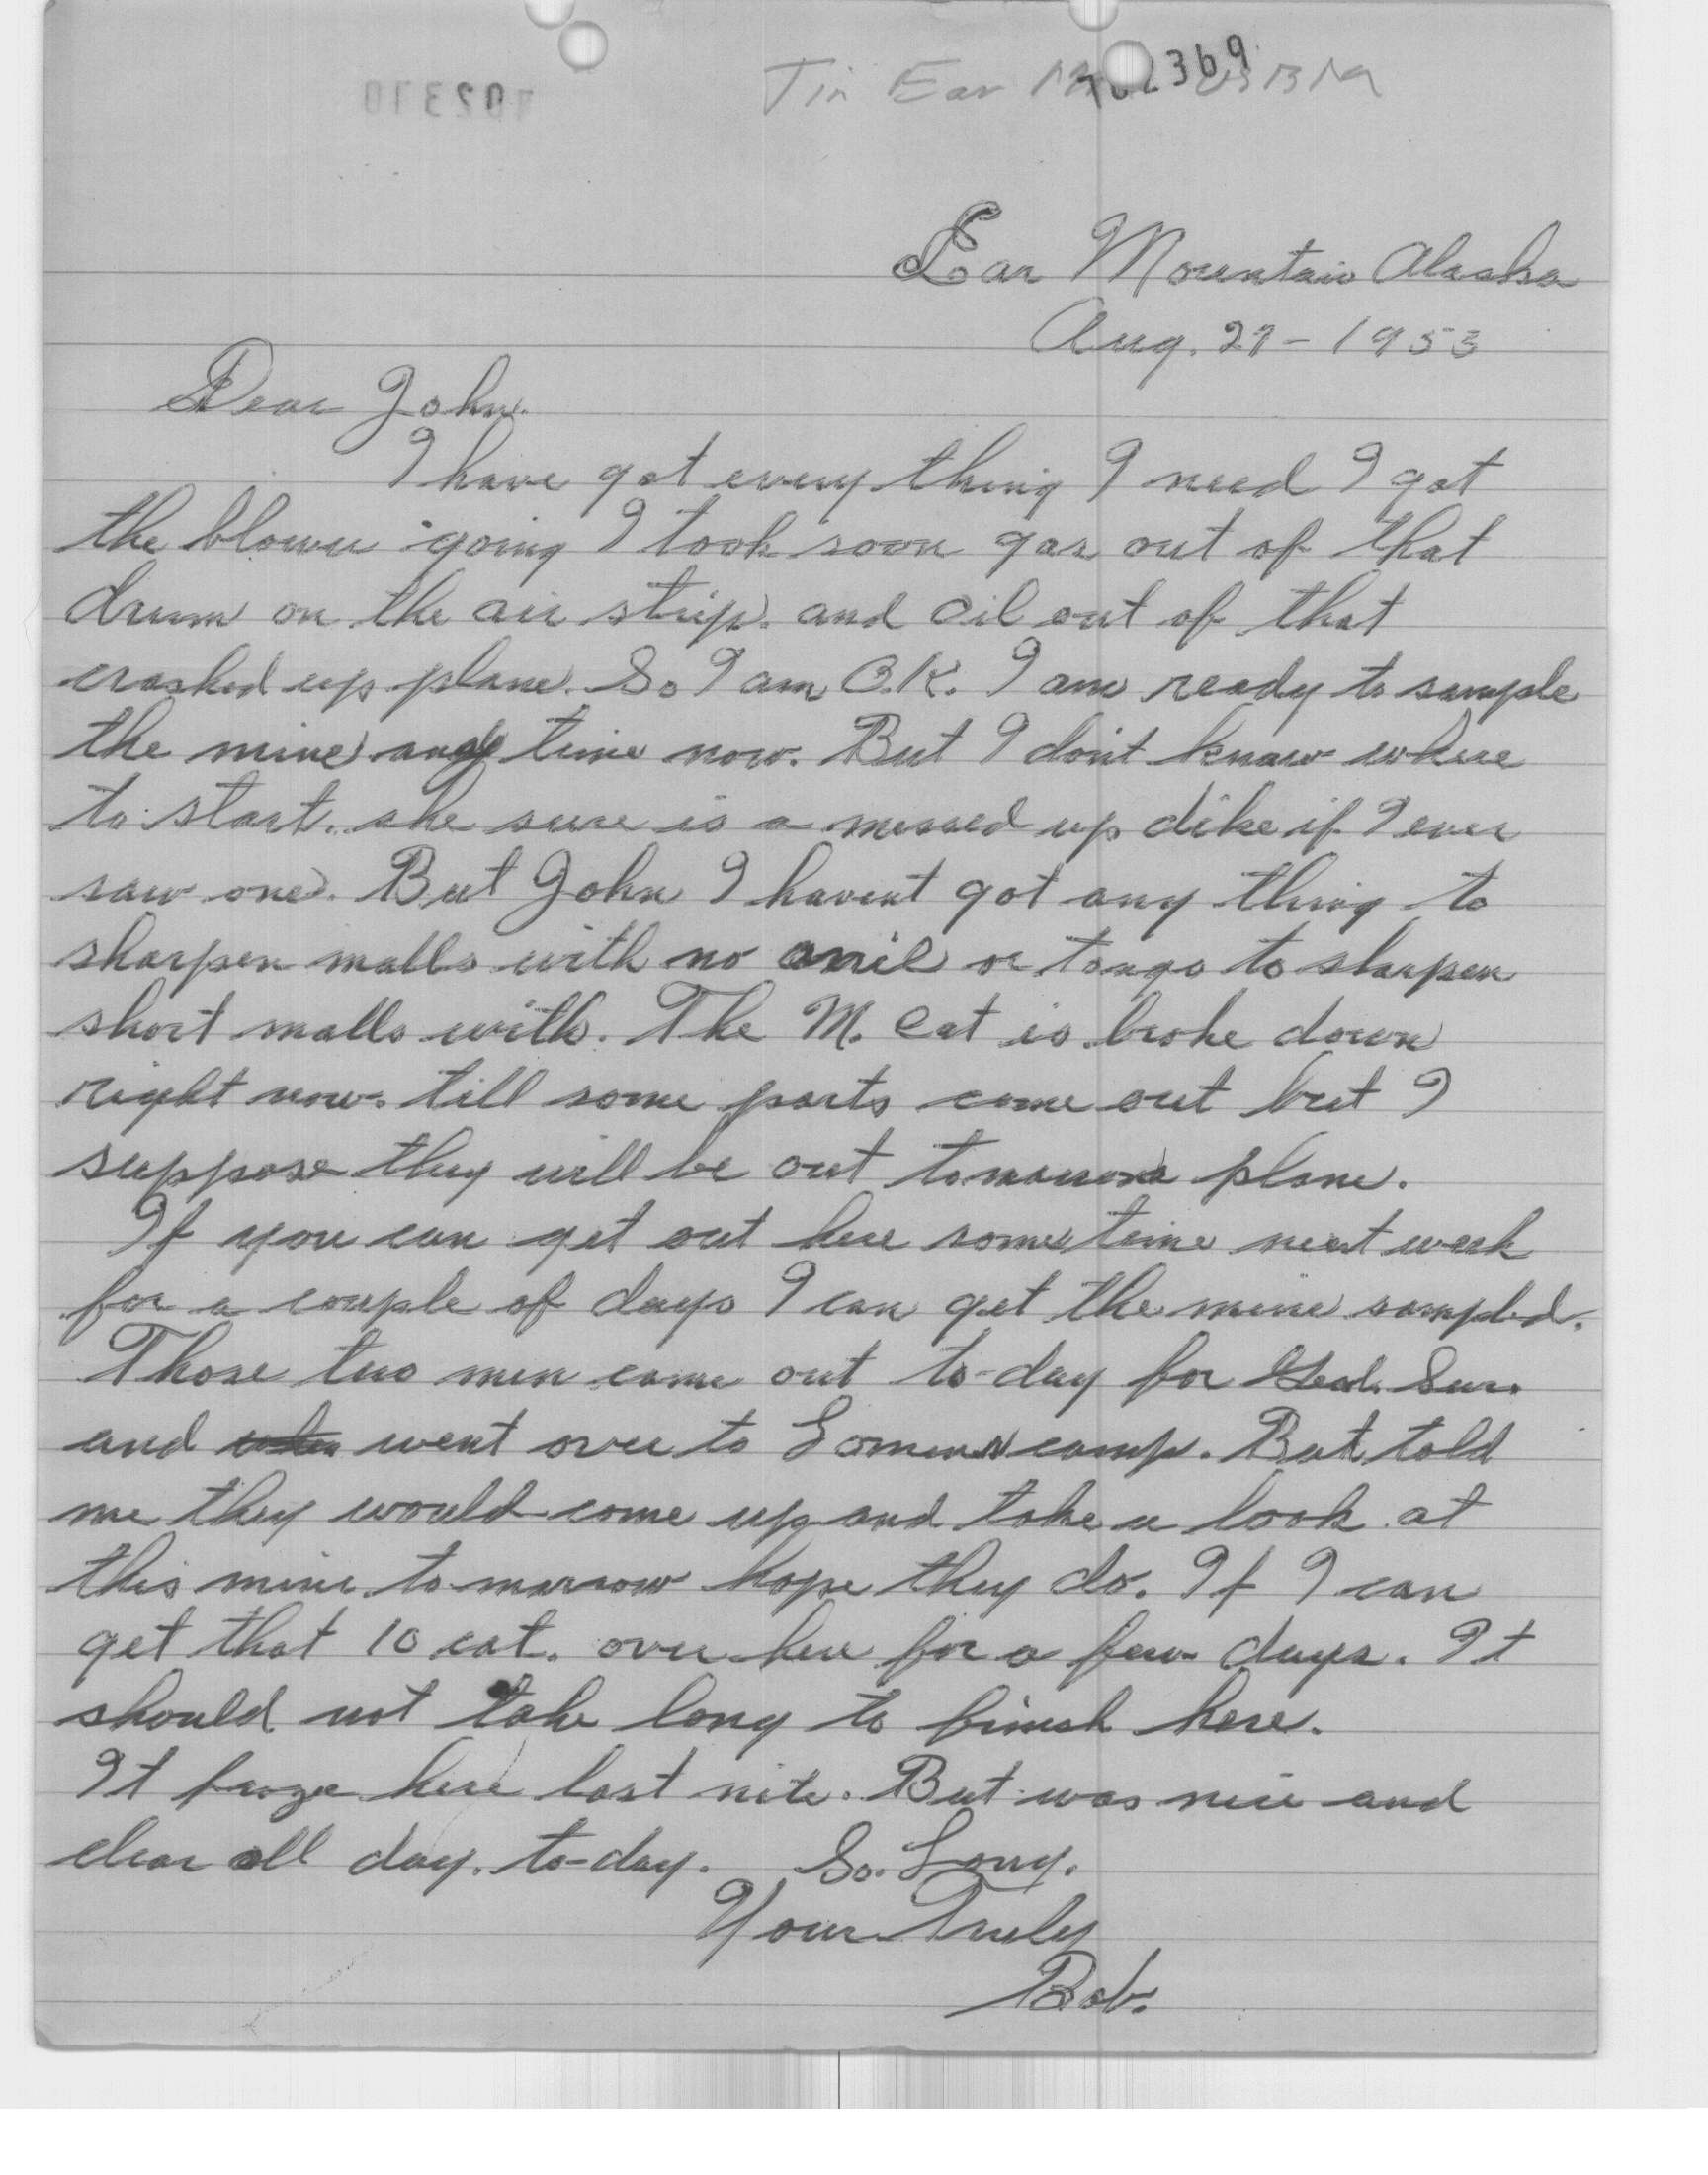 Tin Ear
Ear Mountain Alaska
Aug. 27-1953
Dear John.
I have got every thing I need I got
the blower going I took soom gas out of that
drum on the air strip. and oil out of that
crashed up plane. So I am O.K. I am ready to sample
the mine any time now. But I don't know where
to start. she sure is a messed up dike if I ever
saw one. But John I havent got any thing to
sharpen malls with no anil or tongs to sharpen
short malls with. The M. Cat is broke down
right now. till some parts come out but I
suppose they will be out plane.
If you can get out here some time next week
for a couple of days I can get the mine sampled.
Those two men came out to-day for Geol. Sur.
and went over to camp. But told
me they would come up and take a look at
this mine to-marrow hope they do. If I can
get that 10 cat. over here for a few days. It
should not take long to finish here.
It froze here last nite. But was nice and
clear all day. to-day. So. Long.
Your Truly
Bob.